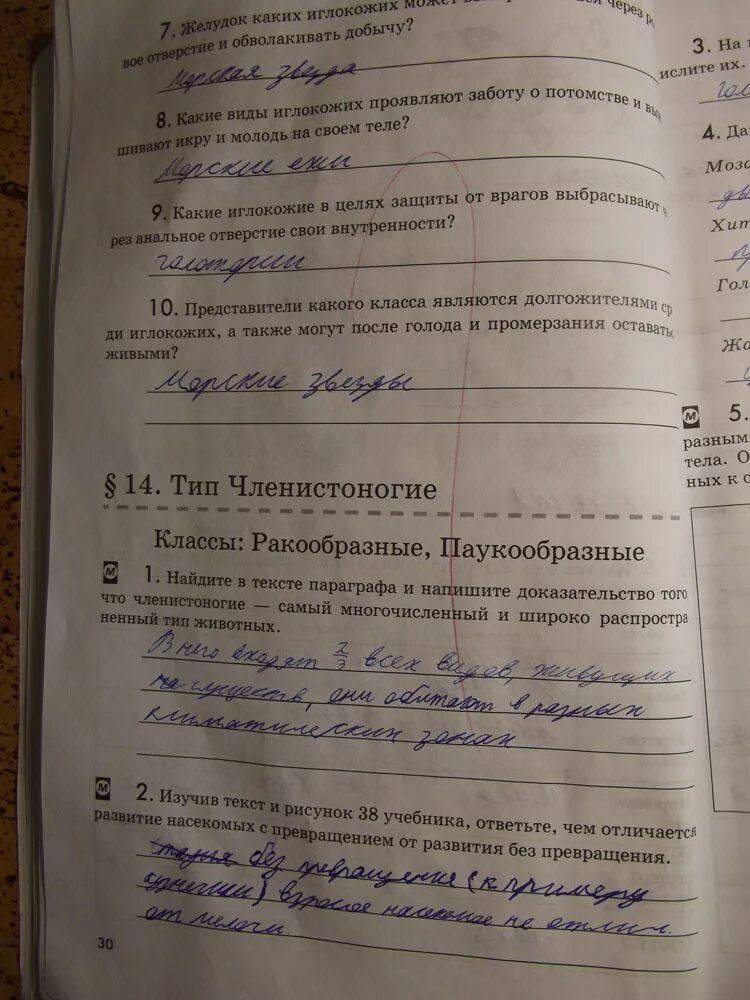 7. Желудок каких иглокожих может через ро
вое отверстие и обволакивать добычу?
Морская звезда
8. Какие виды иглокожих проявляют заботу о потомстве и вы
шивают икру и молодь на своем теле?
Морские ежи
9. Какие иглокожие в целях защиты от врагов выбрасывают ч
рез анальное отверстие свои внутренности?
голотурии
10. Представители какого класса являются долгожителями ср
ди иглокожих, а также могут после голода и промерзания оставать
живыми?
Морские звезды
§ 14. Тип Членистоногие
Классы: Ракообразные, Паукообразные
1. Найдите в тексте параграфа и напишите доказательство того
что членистоногие — самый многочисленный и широко распростра
ненный тип животных.
В него входят 2/3 всех видов, живущих
существ, они обитают в разных
климатических зонах
2. Изучив текст и рисунок 38 учебника, ответьте, чем отличается
развитие насекомых с превращением от развития без превращения.
без превращения (к примеру
) взрослое насекомое не отлич.
от
30
3. На
ислите их.
гол
4. Да
Моза
Хит
Гол
Жа
5.
разным
тела. О
ных к с